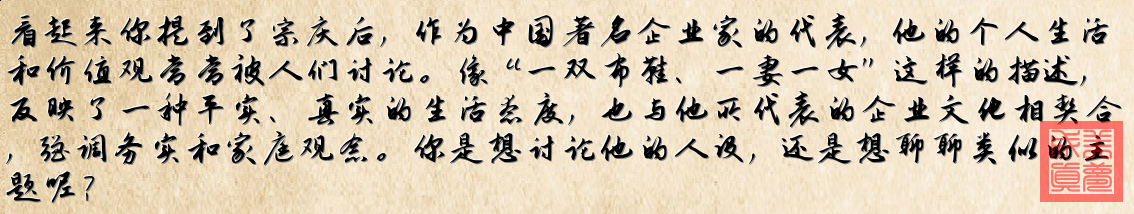 看起来你提到了宗庆后，作为中国著名企业家的代表，他的个人生活
和价值观常常被人们讨论。像“一双布鞋、一妻一女”这样的描述，
反映了一种平实、真实的生活态度，也与他所代表的企业文化相契合
，强调务实和家庭观念。你是想讨论他的人设，还是想聊聊类似的主
题呢？